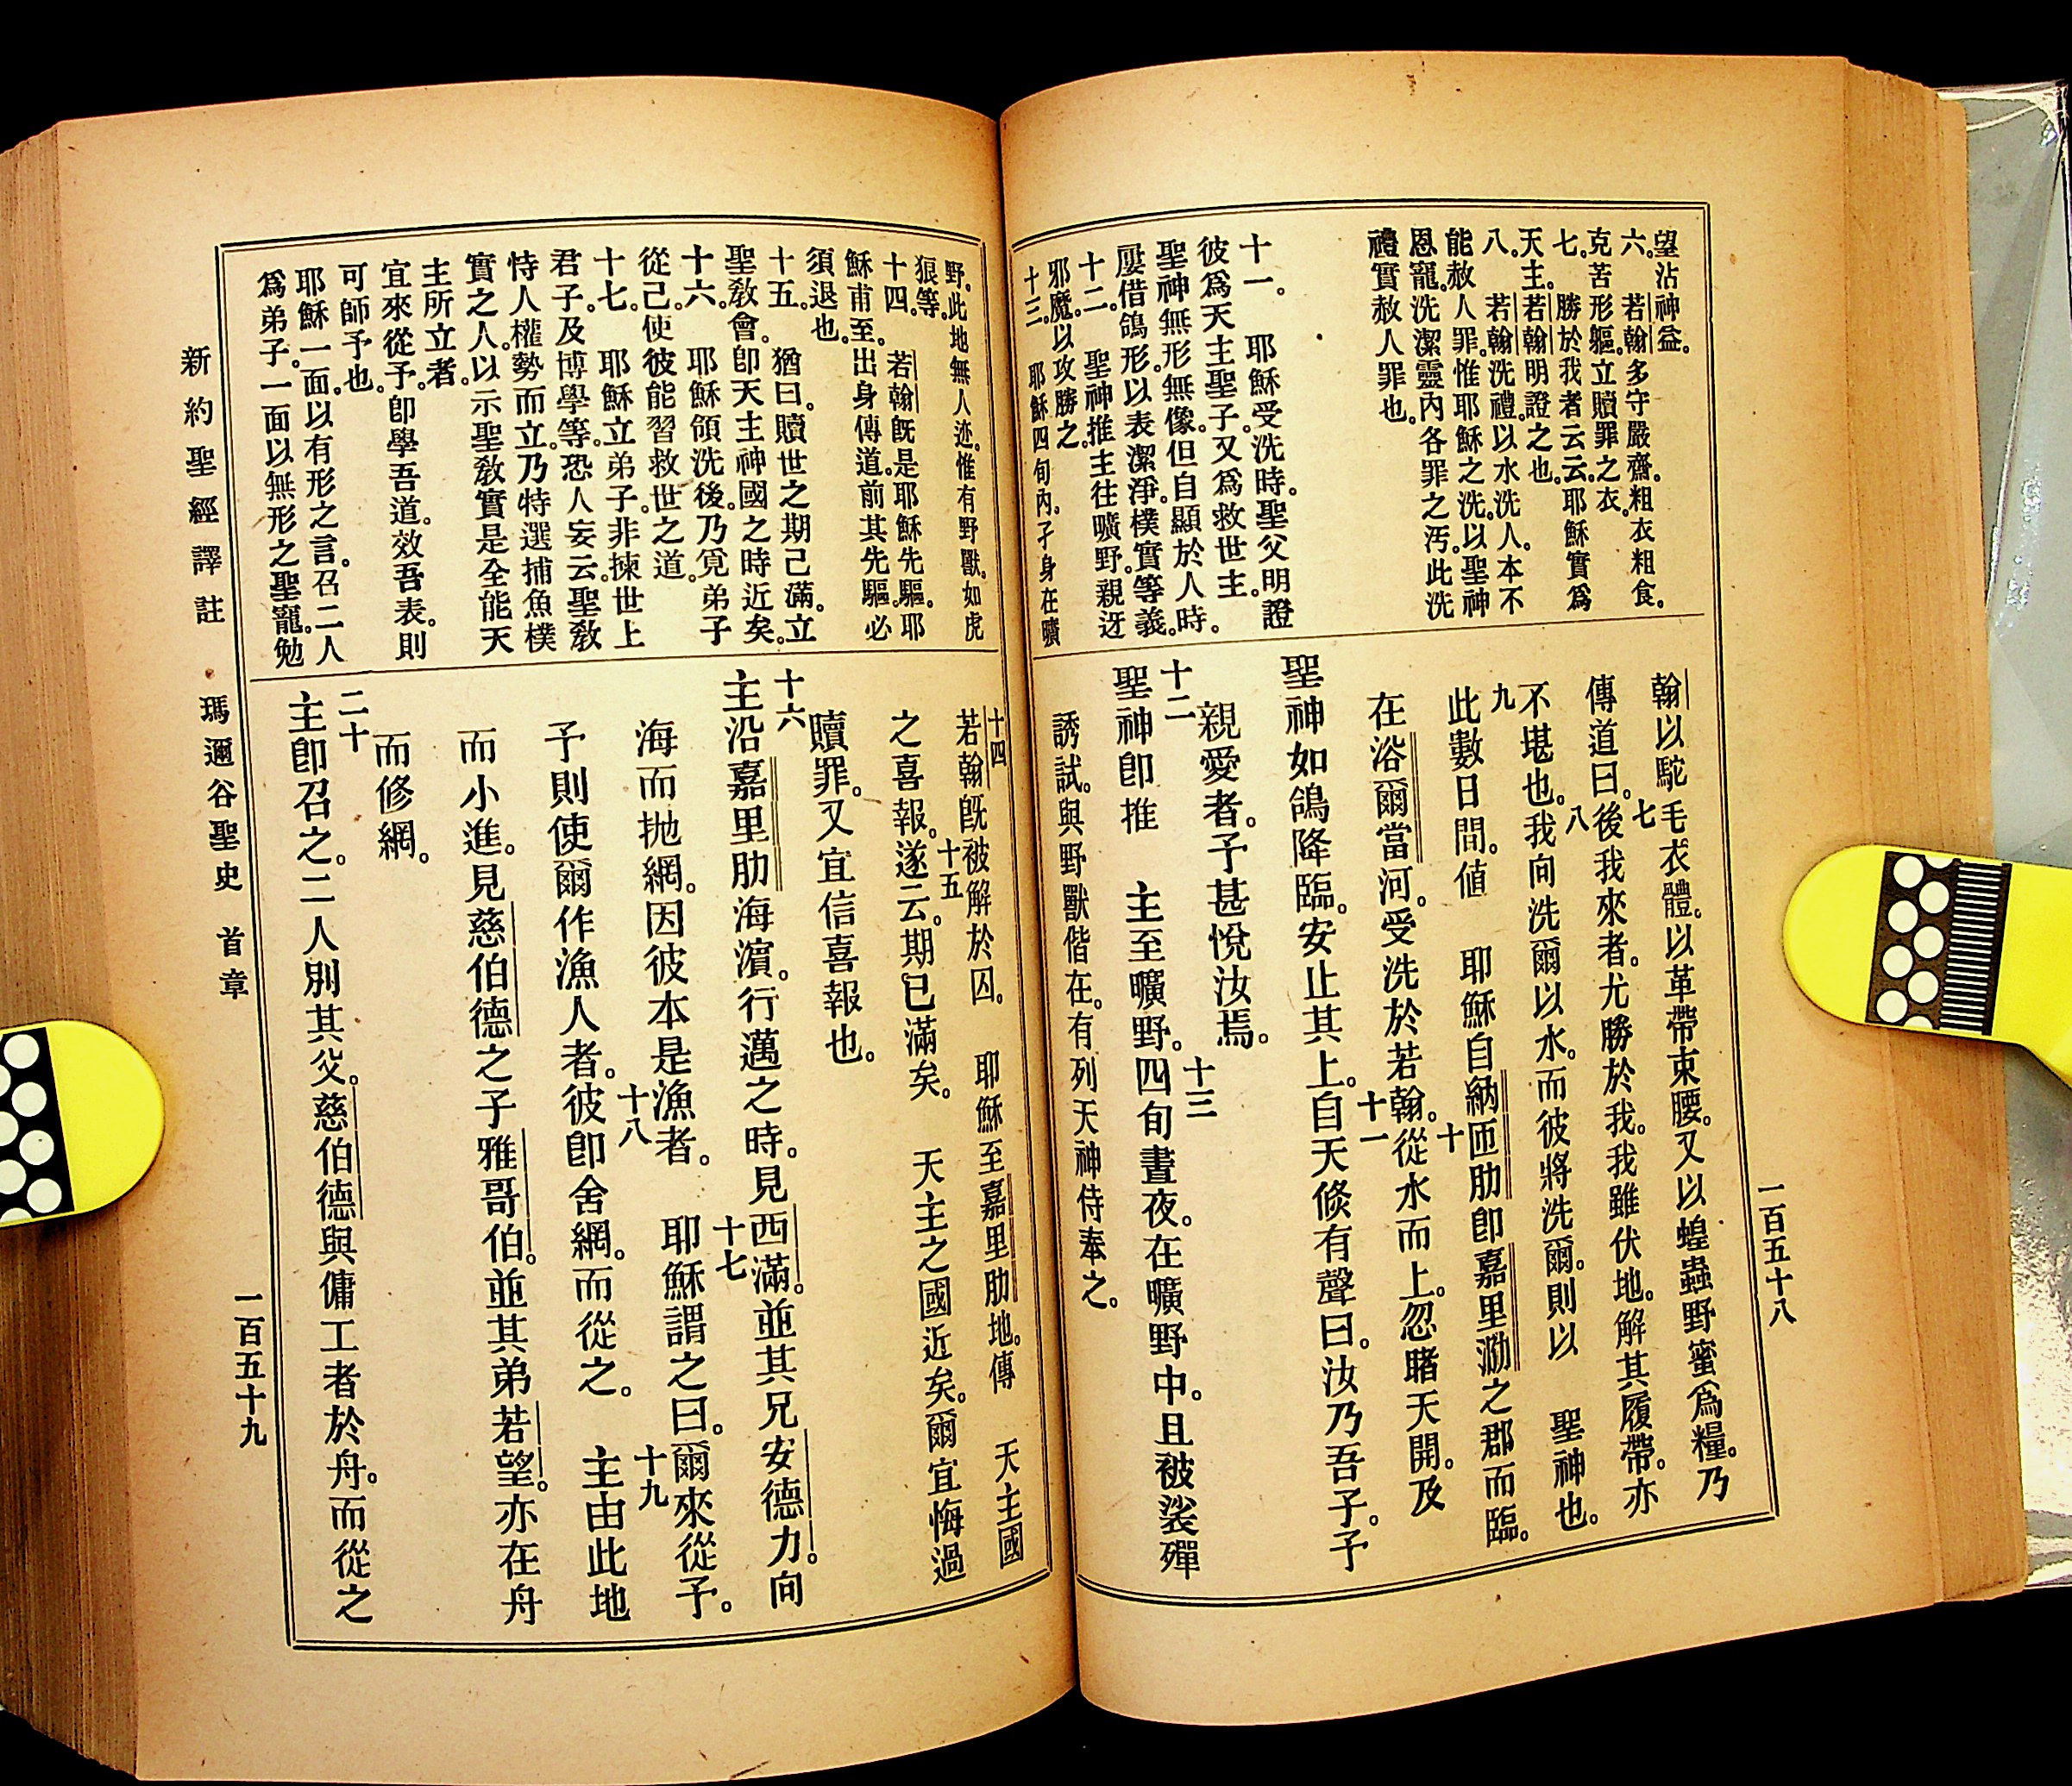 望沾神益。
六。　若翰多守嚴齋。粗衣粗食。
克苦形軀。立贖罪之衣。
七。　勝於我者云云。耶穌實爲
天主。若翰明證之也。
八。　若翰洗禮。以水洗人。本不
能赦人罪。惟耶穌之洗。以聖神
恩寵。洗潔靈內各罪之汚。此洗
禮實赦人罪也。
十一。　耶穌受洗時。聖父明證
彼爲天主聖子。又爲救世主。
聖神無形無像。但自顯於人時。
屢借鴿形。以表潔淨。樸實等義。
十二。　聖神推主往曠野。親迓
邪魔。以攻勝之。
十三。　耶穌四旬內。孑身在曠
翰以駝毛衣體。以革帶束腰。又以蝗蟲野蜜爲糧。乃
七
傳道曰。後我來者。尤勝於我。我雖伏地。解其履帶。亦
八
不堪也。我向洗爾以水。而彼將洗爾。則以　聖神也。
九
此數日間。値　耶穌自納匝肋卽嘉里泐之郡而臨。
十
在浴爾當河。受洗於若翰。從水而上。忽睹天開。及
十一
聖神如鴿降臨。安止其上。自天倐有聲曰。汝乃吾子。予
親愛者。予甚悅汝焉。
十二
聖神卽推　主至曠野。四旬晝夜。在曠野中。且被裟殫
十三
誘試。與野獸偕在。有列天神侍奉之。
一百五十八
野。此地無人迹。惟有野獸。如虎
狼等。
十四。　若翰旣是耶穌先驅。耶
穌甫至。出身傳道。前其先驅。必
須退也。
十五。　猶曰。贖世之期已滿。立
聖教會。卽天主神國之時近矣。
十六。　耶穌領洗後。乃覓弟子
從己。使彼能習救世之道。
十七。　耶穌立弟子。非揀世上
君子。及博學等。恐人妄云。聖教
恃人權勢而立。乃特選捕魚樸
實之人。以示聖教實是全能天
主所立者。
宜來從予。卽學吾道。效吾表。則
可師予也。
耶穌一面以有形之言。召二人
爲弟子。一面以無形之聖寵。勉
十四
若翰旣被解於囚。　耶穌至嘉里肋地。傳　天主國
十五
之喜報。遂云。期已滿矣。　天主之國近矣。爾宜悔過
贖罪。又宜信喜報也。
十六
主沿嘉里肋海濵。行邁之時。見西滿。並其兄安德力。向
十七
海而抛網。因彼本是漁者。　耶穌謂之曰。爾來從予。
十八
予則使爾作漁人者。彼卽舍網。而從之。　主由此地
十九
而小進。見慈伯德之子雅哥伯。並其弟若望。亦在舟
而修網。
二十
主卽召之。二人別其父。慈伯德與傭工者於舟。而從之
新約聖經譯註　瑪邇谷聖史　首章
一百五十九